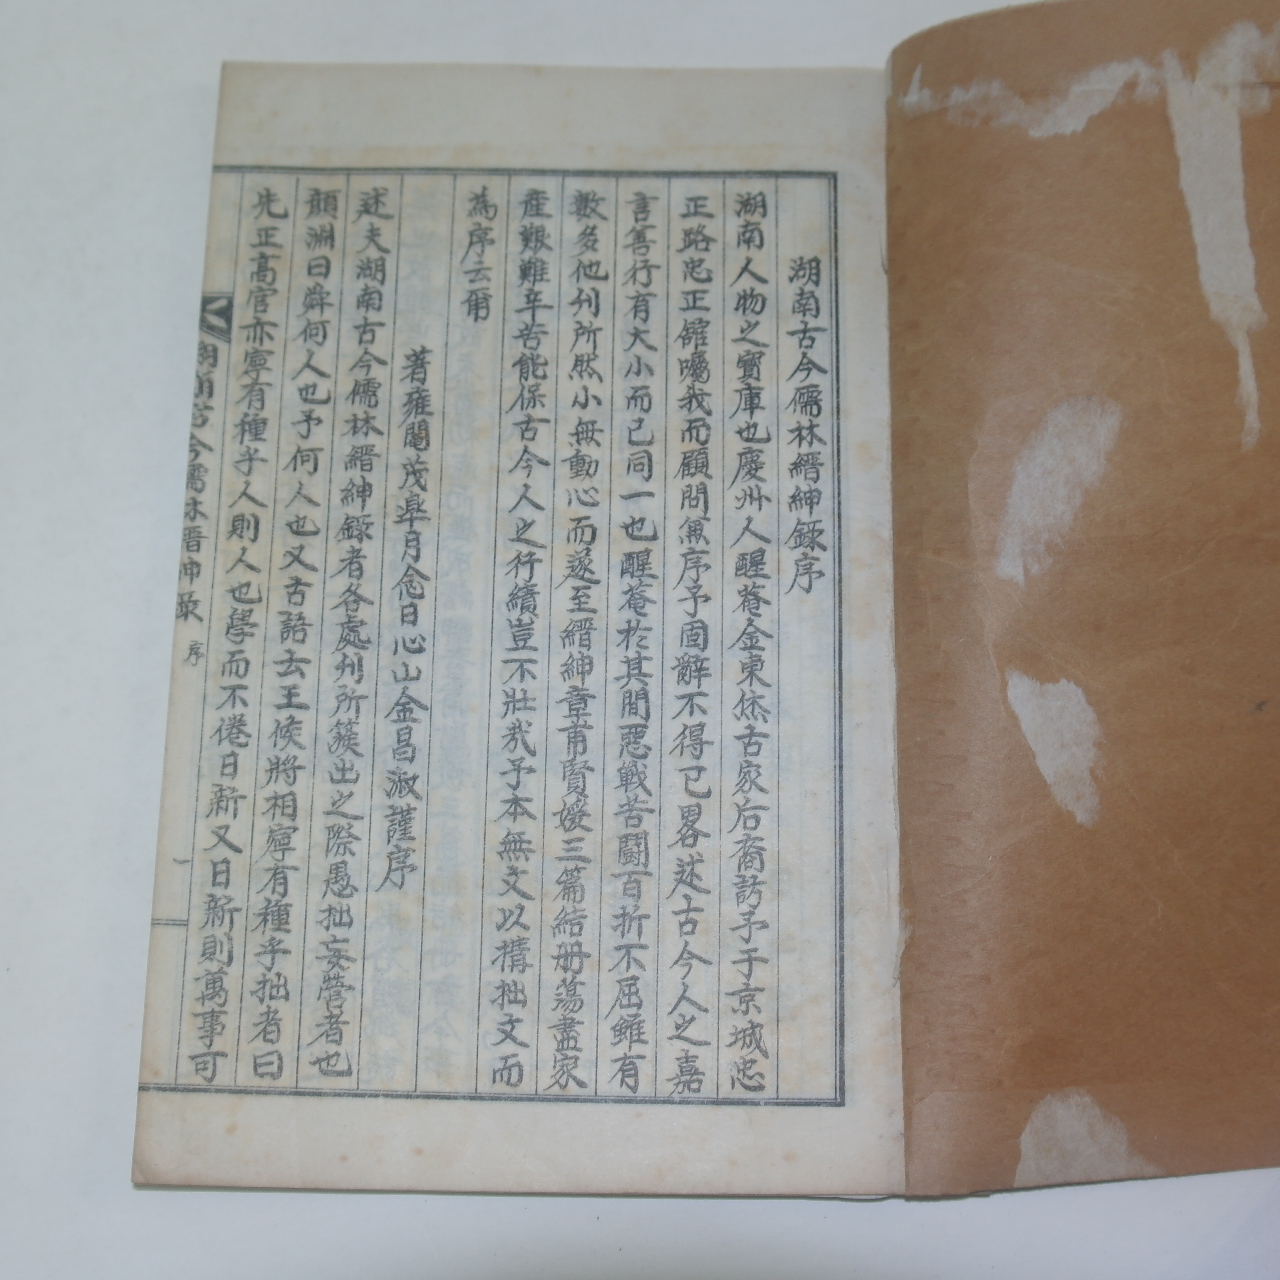 湖南古今儒林縉紳錄序
湖南人物之寶庫也慶州人醒菴金東烋古家后裔訪予于京城忠
正路忠正舘囑我而顧問兼序予固辭不得已畧述古今人之嘉
言善行有大小而已同一也醒菴於其間惡戰苦鬪百折不屈雖有
數多他刋所然小無動心而遂至縉紳章甫賢媛三篇結册蕩盡家
産艱難辛苦能保古今人之行績豈不壯哉予本無文以搆拙文而
為序云爾
著雍閹茂皐月念日心山金昌淑謹序
述夫湖南古今儒林縉紳錄者各處刋所簇出之際愚拙妄營者也
顔淵曰舜何人也予何人也又古語去王候將相寧有種乎拙者曰
先正高官亦寧有種乎人則人也學而不倦日新又日新則萬事可
湖南古今儒林縉紳錄 序 一